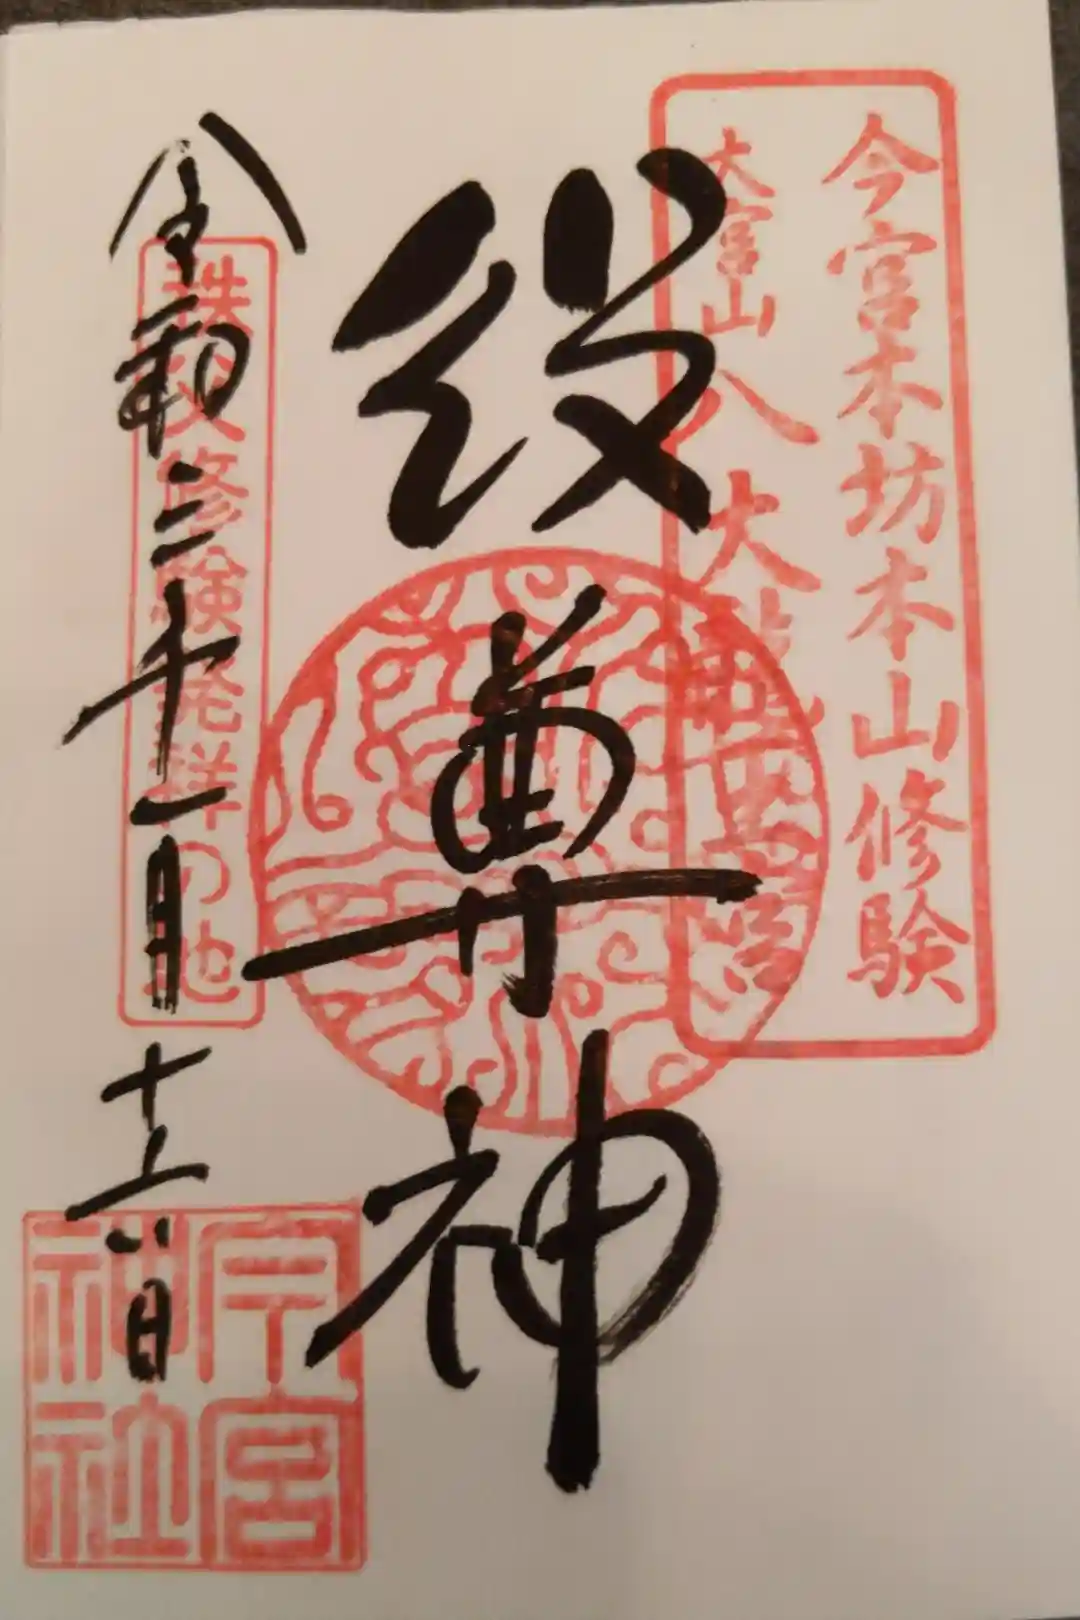 今宮本坊本山修験
大宮山八大龍王宮
役尊神
秩父修験発祥の地
令和三年十一月十六日
今宮神社